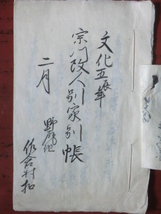 文化五年
宗門改人別家別帳
二月
佐倉村扣